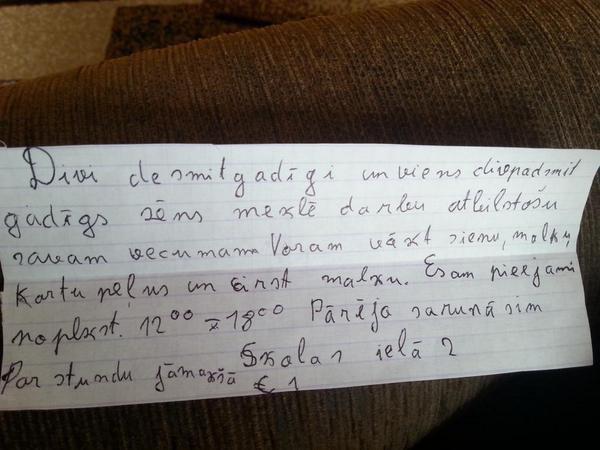 Divi desmitgadīgi un viens divpadsmit
gadīgs zēns meklē darbu atbilstošu
savam vecumam. Varam vākt sienu, malku,
Kartupeļus un cirst malku. Esam pieejami
no plkst. 12⁰⁰ - 18⁰⁰ Pārējo sarunāsim
Skolas ielā 2
Par stundu jāmaksā € 1